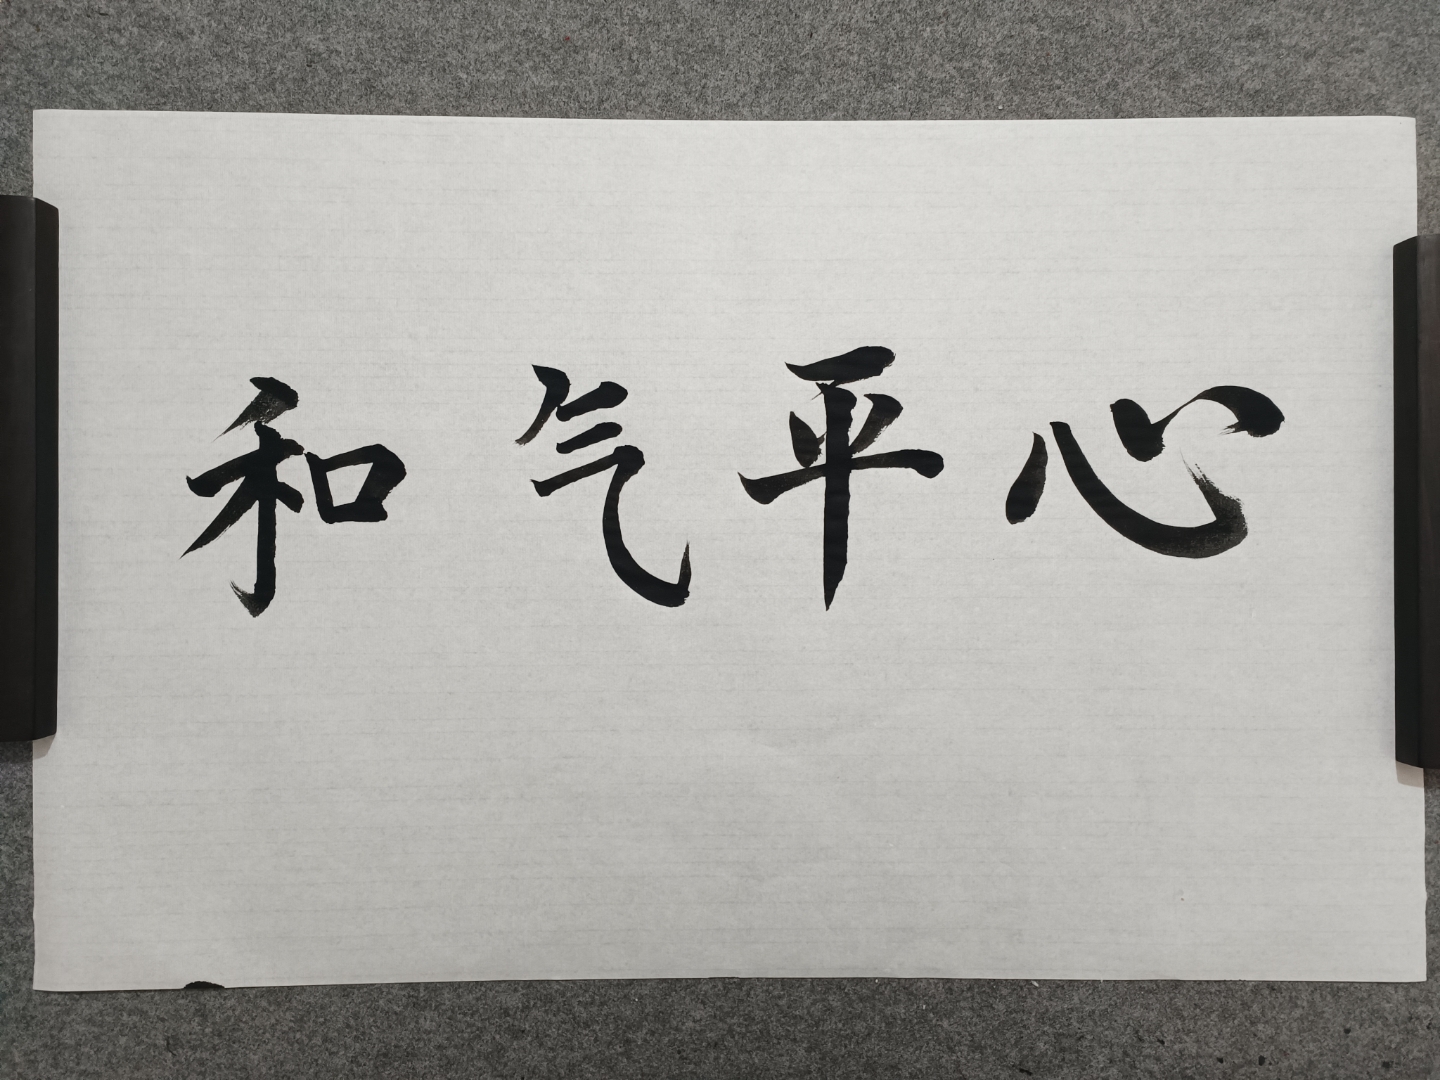 心平气和